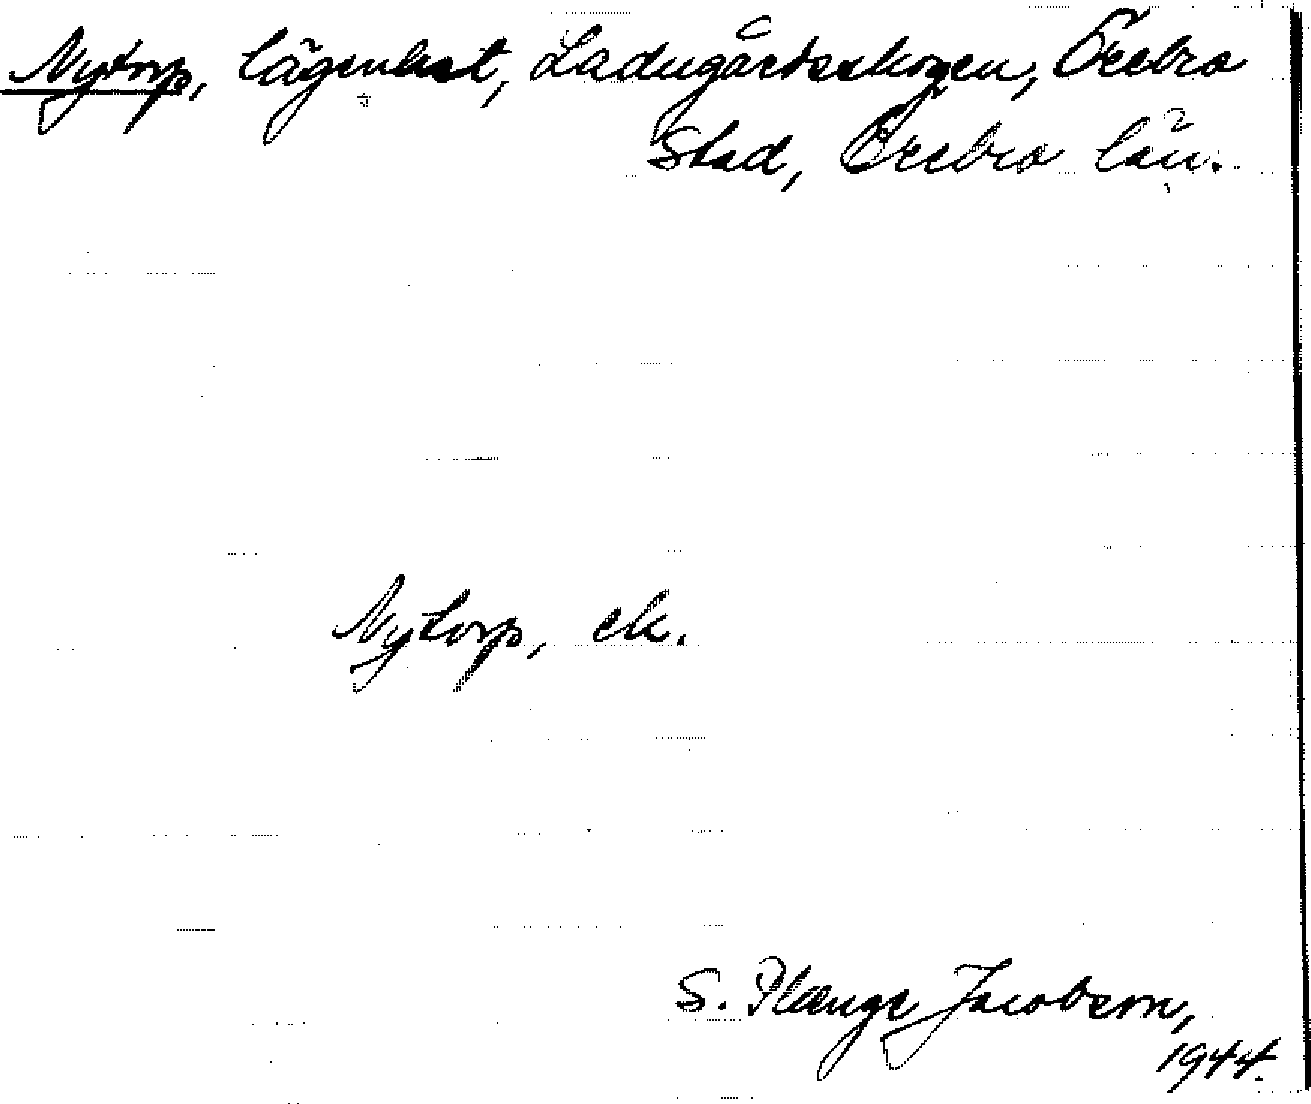 Nytorp, lägenhet, Ladugårdsskogen, Örebro
Stad, Örebro län.
Nytorp, ek.
S. Plænge Jacobson,
1944.